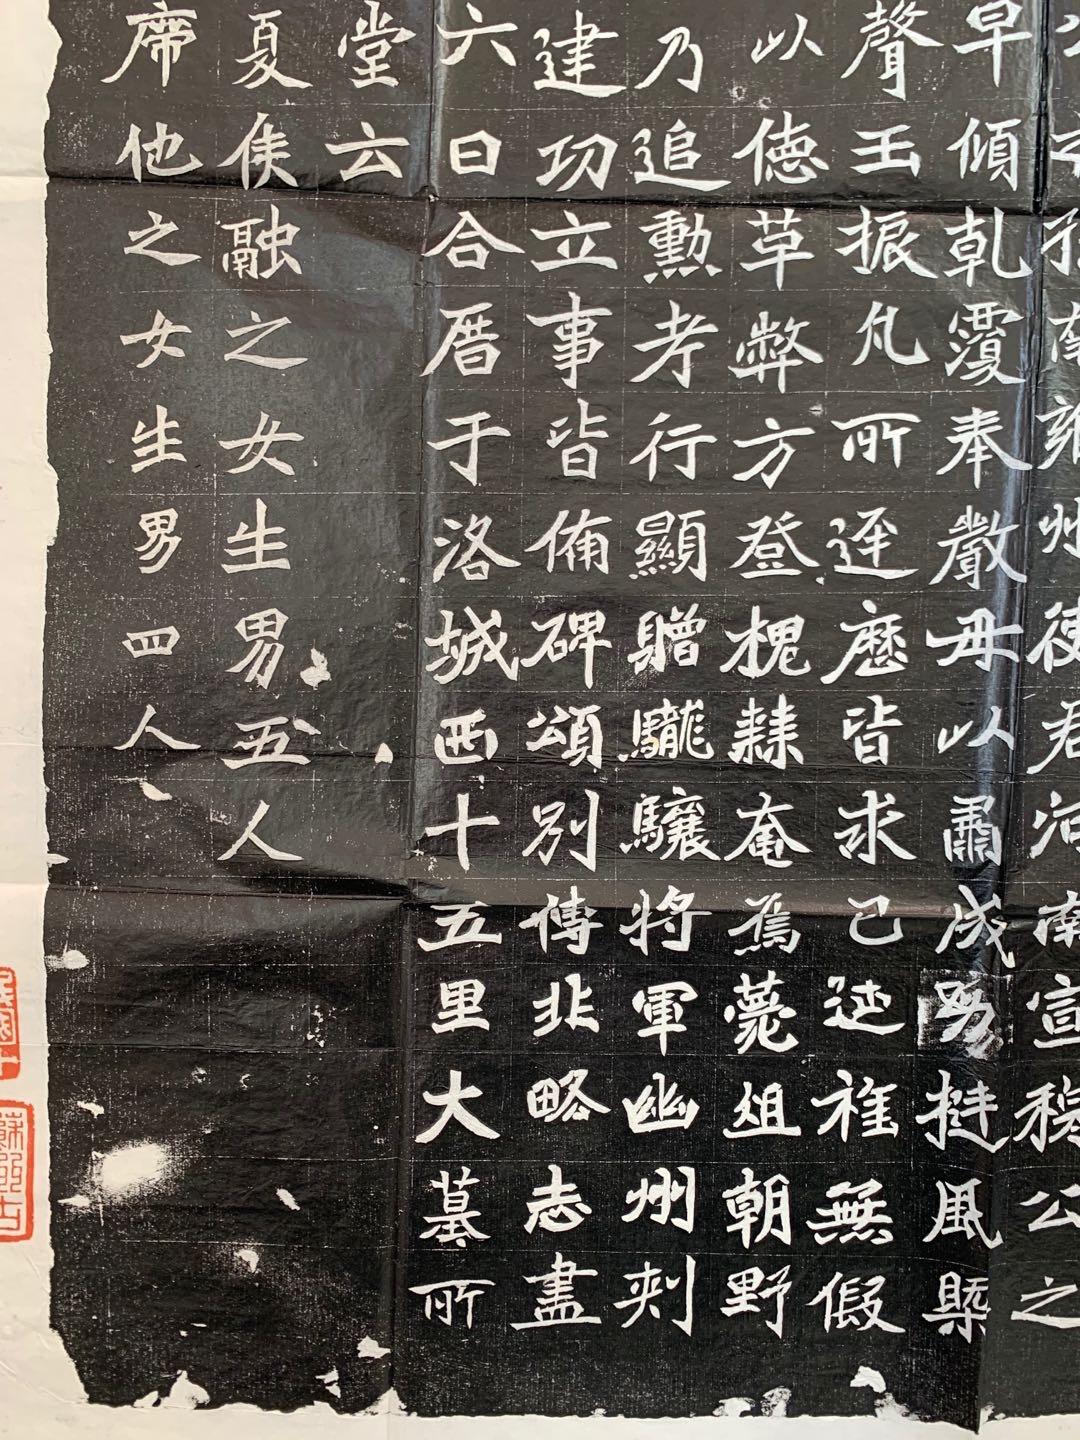 州使君河南宣穆公之
早傾乾覆奉嚴母以肅成易挺風槩
聲玉振凡所逕歷皆求己無假
以德草弊方登槐棘奄焉薨俎朝野
乃追勳考行顯贈䮾驤將軍幽州刾
建功立事皆俻碑頌別傳非略志盡
六日合厝于洛城西十五里大墓所
堂六
夏侯融之女生男五人
席他之女生男四人